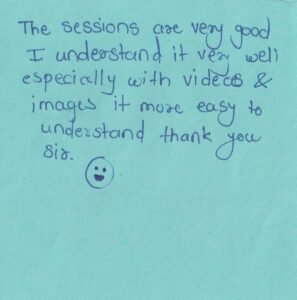 The sessions are very good
I understand it very well
especially with videos &
images it more easy to
understand thank you
sir.